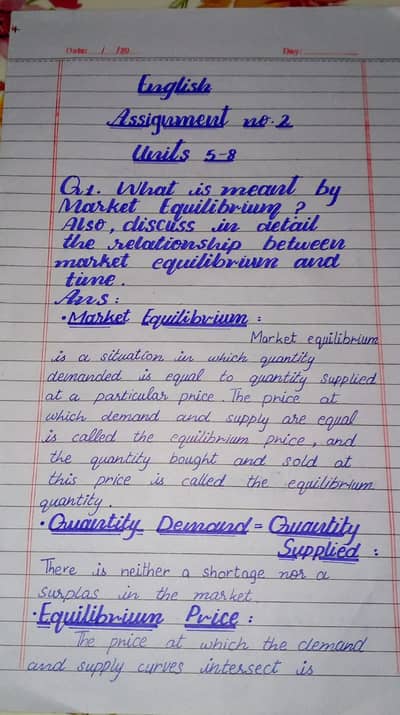 Date: / /20 Day:
English
Assignment no. 2
Units 5-8
Q1. What is meant by
Market Equilibrium ?
Also, discuss in detail
the relationship between
market equilibrium and
time.
Ans :
• Market Equilibrium :
Market equilibrium
is a situation in which quantity
demanded is equal to quantity supplied
at a particular price. The price at
which demand and supply are equal
is called the equilibrium price, and
the quantity bought and sold at
this price is called the equilibrium
quantity.
• Quantity Demand = Quantity
Supplied :
There is neither a shortage nor a
surplas in the market.
• Equilibrium Price :
The price at which the demand
and supply curves intersect is